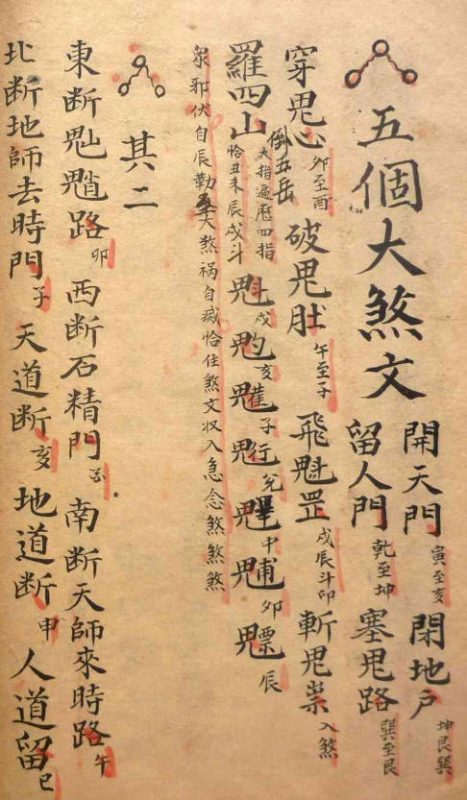 五個大煞文
開天門 寅至亥 閉地户 坤艮巽
留人門 乾至坤 塞鬼路 巽至艮
穿鬼心 卯至酉 破鬼肚 午至子 飛魁罡 戌辰斗卯 斬鬼祟 入煞
倒五岳
羅四山 大指遍歷四指 恰丑未辰戌斗 魁 戌 亥 子 兑 中 卯 辰
眾邪伏自辰勒 天煞祸自滅恰住煞文収入急念煞煞煞
其二
東断 路 卯 西断石精門 酉 南断天師來時路 午
北断地師去時門 子 天道断 亥 地道断 申 人道留 巳